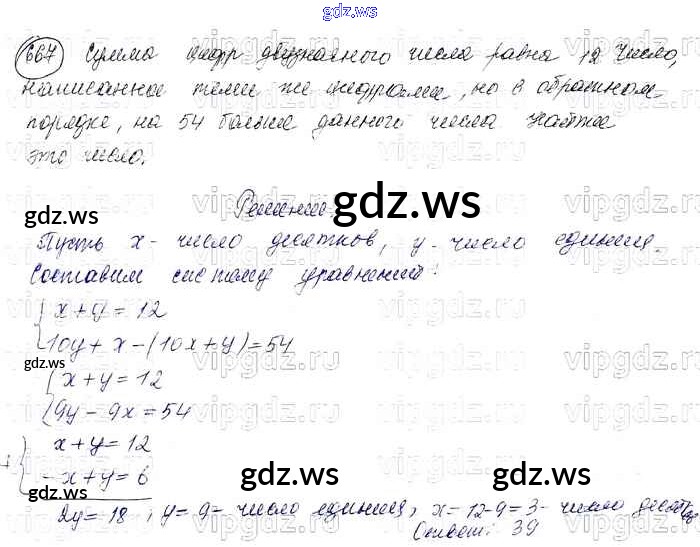 gdz.ws
667 Сумма цифр двузначного числа равна 12 Число,
написанное теми же цифрами, но в обратном
порядке, на 54 больше данного числа Найти
это число.
gdz.ws gdz.ws
Решение.
Пусть x - число десятков, y - число единиц.
Составим систему уравнений:
x + y = 12
10y + x - (10x + y) = 54
gdz.ws
x + y = 12
9y - 9x = 54
+ x + y = 12
- x + y = 6
gdz.ws gdz.ws gdz.ws
2y = 18 ; y = 9 - число единиц, x = 12 - 9 = 3 - число десятков
Ответ: 39
gdz.ws
vipgdz.ru